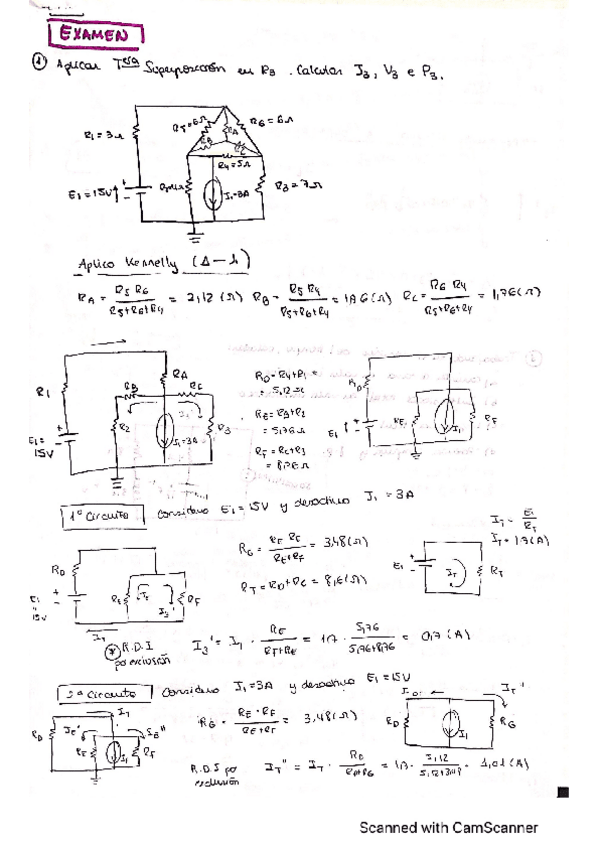 EXAMEN
① Aplicar Tma Superposición en R3. Calcular I3, V3 e P3.
R1=3Ω
R5=6Ω
R6=6Ω
RA
RB
RC
R4=5Ω
E1=15V
I1=3A
R3=7Ω
Aplico Kennelly (Δ-λ)
RA = R5 R6 / R5+R6+R4 = 2,12 (Ω) RB = R5 R4 / R5+R6+R4 = 1,76 (Ω) RC = R6 R4 / R5+R6+R4 = 1,76 (Ω)
R1
RA
RB
RC
R2
R3
E1=
15V
I1=3A
= 5,12 Ω
RE=RB+R2
= 5,76 Ω
RF = RC+R3
= 8,76 Ω
RD
E1
RE
I1
RF
1º Circuito Considero E1=15V y desactivo I1 = 3A
RD
E1
15V
RE
RF
IT
RG = RE RF / RE+RF = 3,48 (Ω)
RT = RD+RG = 8,6 (Ω)
E1
IT
RT
IT = E1 / RT
IT = 1,7 (A)
R.D.I
por exclusión
I3' = I1 · RE / RF+RE = 1,7 · 5,76 / 5,76+8,76 = 0,7 (A)
2º Circuito Considero I1=3A y desactivo E1=15V
RD
RE
I1
RF
I3''
RG = RE · RF / RE+RF = 3,48 (Ω)
RD
I1
RG
IT'
R.D.I por
exclusión
IT'' = IT · RD / RD+RG = 1,7 · 5,12 / 5,12+3,48 = 1,01 (A)
Scanned with CamScanner